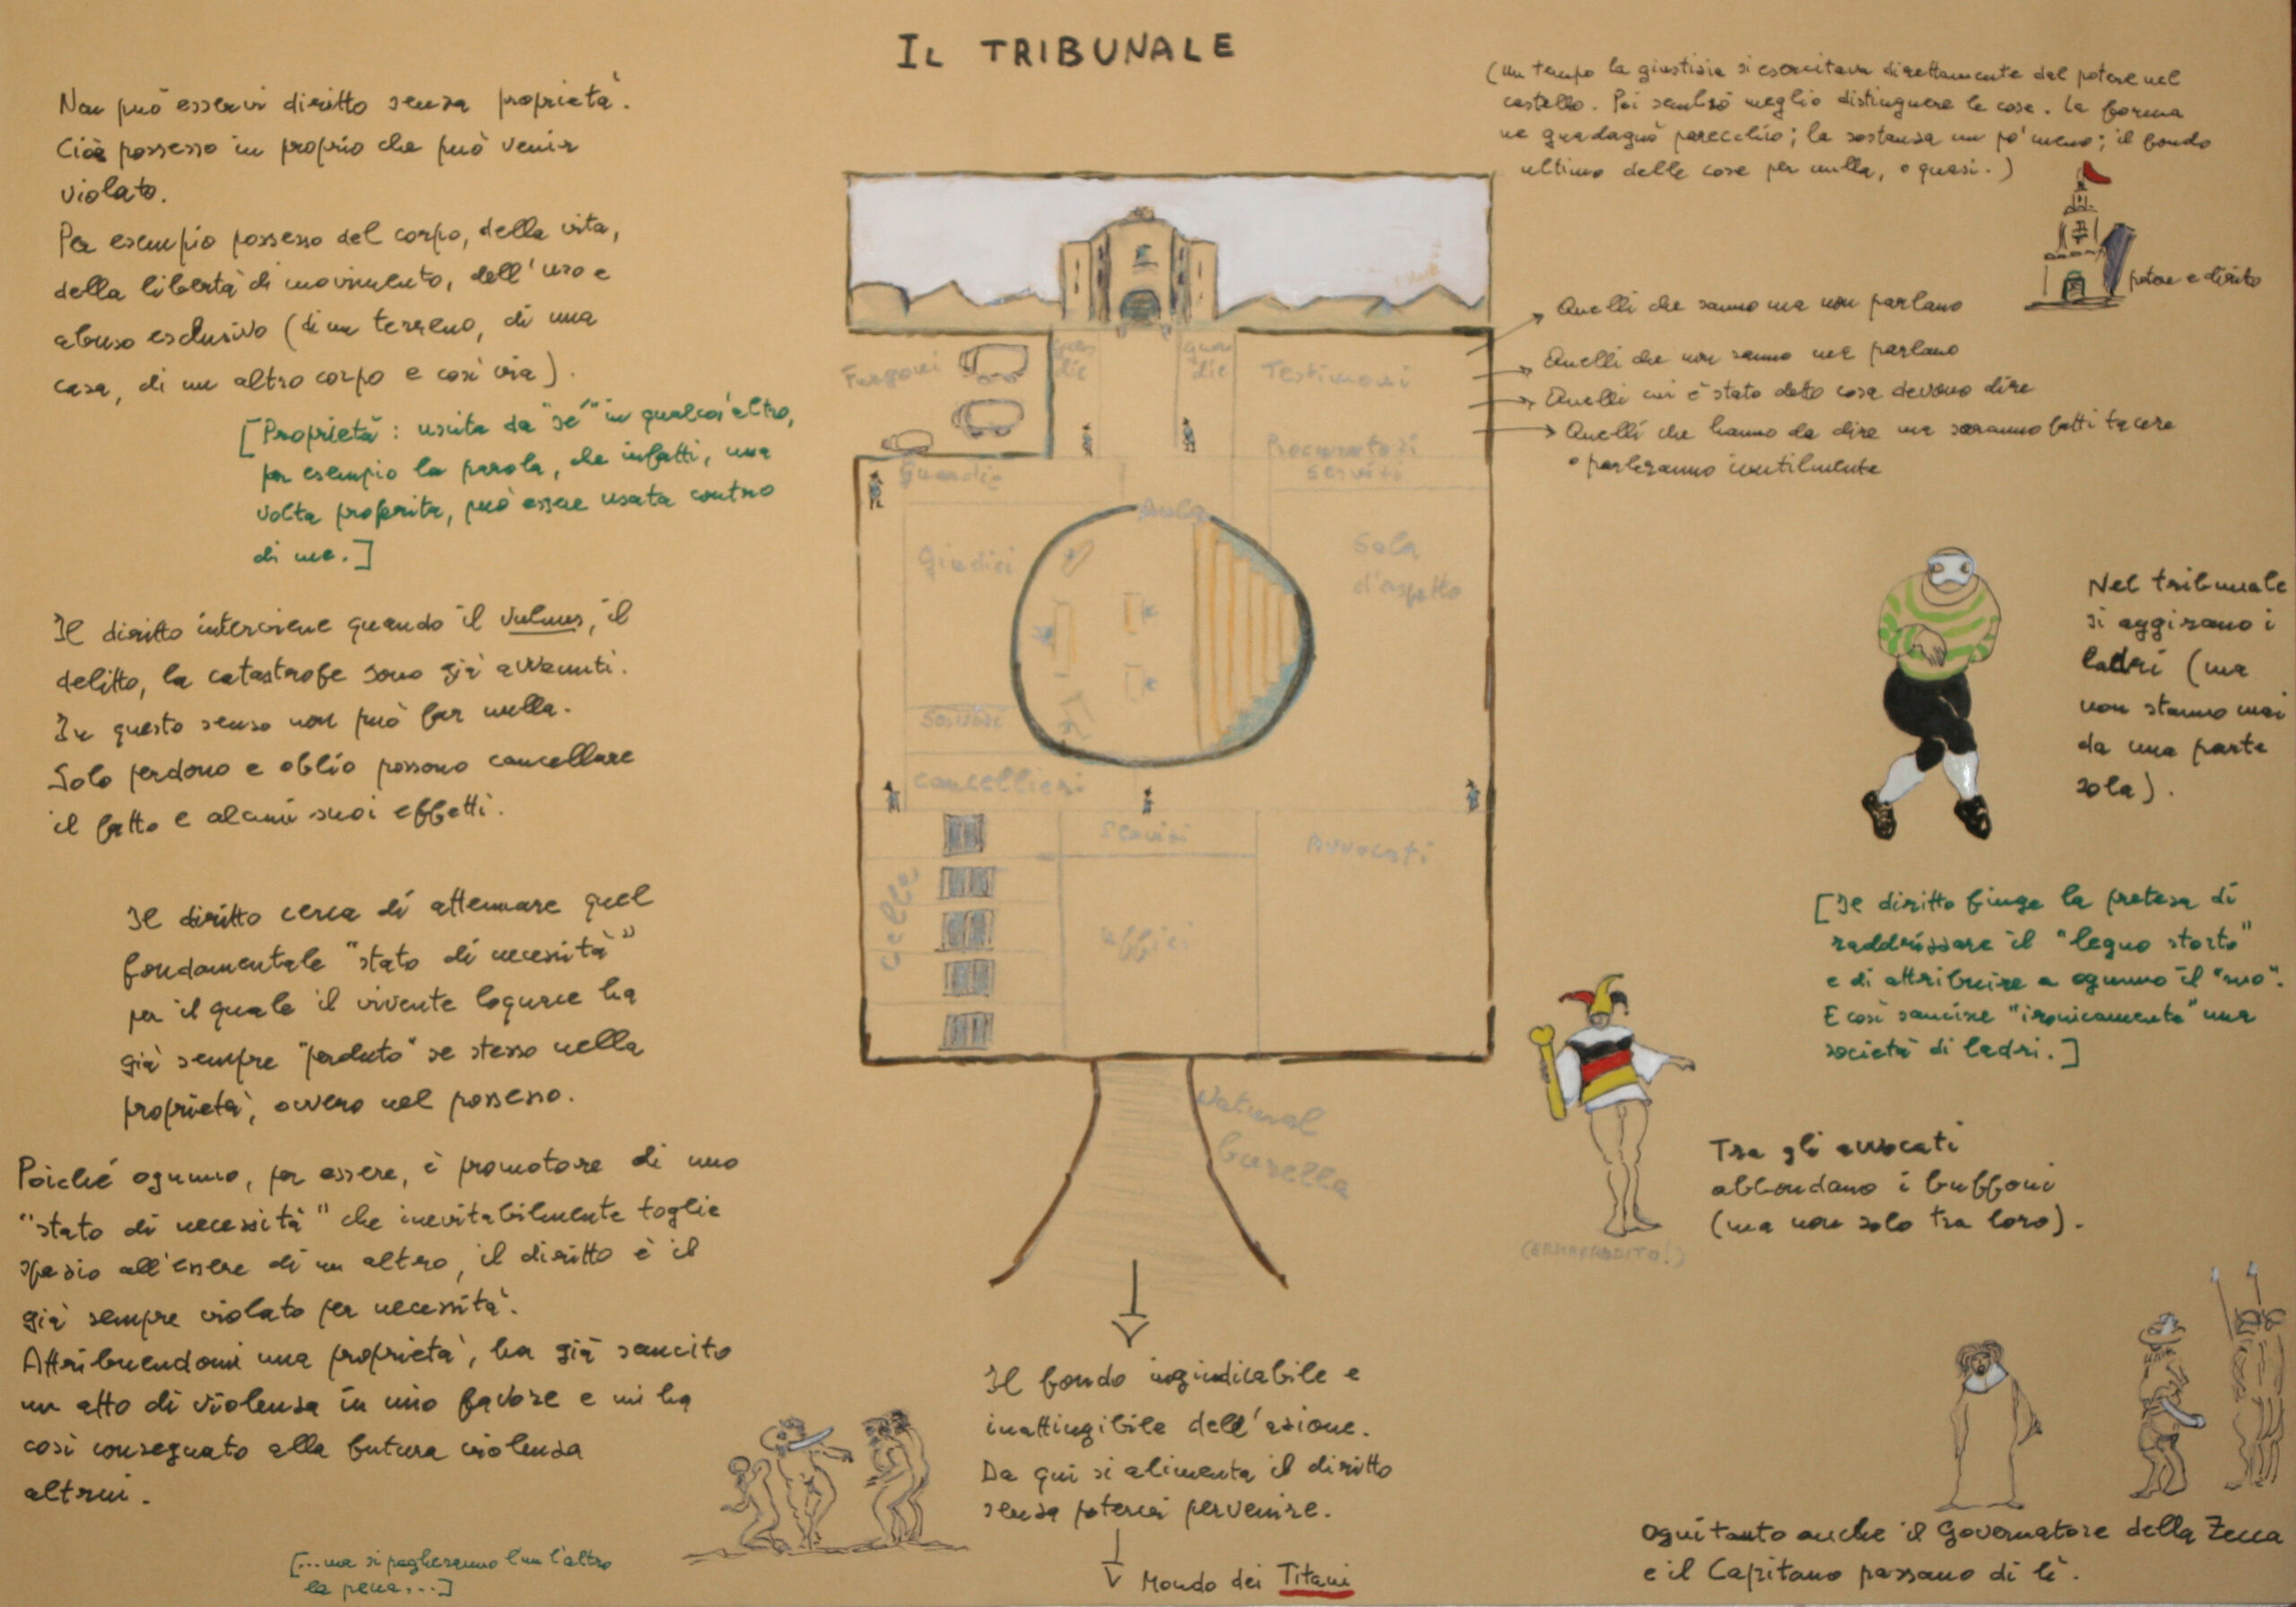 IL TRIBUNALE
Non può esservi diritto senza proprietà.
Cioè possesso in proprio che può venir
violato.
Per esempio possesso del corpo, della vita,
della libertà di movimento, dell'uso e
abuso esclusivo (di un terreno, di una
casa, di un altro corpo e così via).
[Proprietà: uscita da "sé" in qualcos'altro,
per esempio la parola, che infatti, una
volta proferita, può essere usata contro
di me.]
Il diritto interviene quando il vulnus, il
delitto, la catastrofe sono già avvenuti.
In questo senso non può far nulla.
Solo perdono e oblio possono cancellare
il fatto e alcuni suoi effetti.
Il diritto cerca di attenuare quel
fondamentale "stato di necessità"
per il quale il vivente loquace ha
già sempre "perduto" se stesso nella
proprietà, ovvero nel possesso.
Poiché ognuno, per essere, è promotore di uno
"stato di necessità" che inevitabilmente toglie
spazio all'essere di un altro, il diritto è il
già sempre violato per necessità.
Attribuendomi una proprietà, ha già sancito
un atto di violenza in mio favore e mi ha
così consegnato alla futura violenza
altrui.
[...ma si pagheranno l'un l'altro
la pena...]
Furgoni
Guar
die
Guar
die
Testimoni
Procuratori
Servizi
Guardie
Aula
Giudici
Sala
d'aspetto
Servizi
Cancellieri
Servizi
Avvocati
Celle
Uffici
Natural
burella
Il fondo ingiudicabile e
inattingibile dell'azione.
Da qui si alimenta il diritto
senza potervi pervenire.
Mondo dei Titani
(Un tempo la giustizia si esercitava direttamente dal potere nel
castello. Poi sembrò meglio distinguere le cose. La forma
ne guadagnò parecchio; la sostanza un po' meno; il fondo
ultimo delle cose per nulla, o quasi.)
potere e diritto
Quelli che sanno ma non parlano
Quelli che non sanno ma parlano
Quelli cui è stato detto cosa devono dire
Quelli che hanno da dire ma saranno fatti tacere
o parleranno inutilmente
Nel tribunale
si aggirano i
ladri (ma
non stanno mai
da una parte
sola).
[Il diritto finge la pretesa di
raddrizzare il "legno storto"
e di attribuire a ognuno il "suo".
E così sancisce "ironicamente" una
società di ladri.]
(ERMAFRODITO!)
Tra gli avvocati
abbondano i buffoni
(ma non solo tra loro).
Ogni tanto anche il Governatore della Zecca
e il Capitano passano di lì.